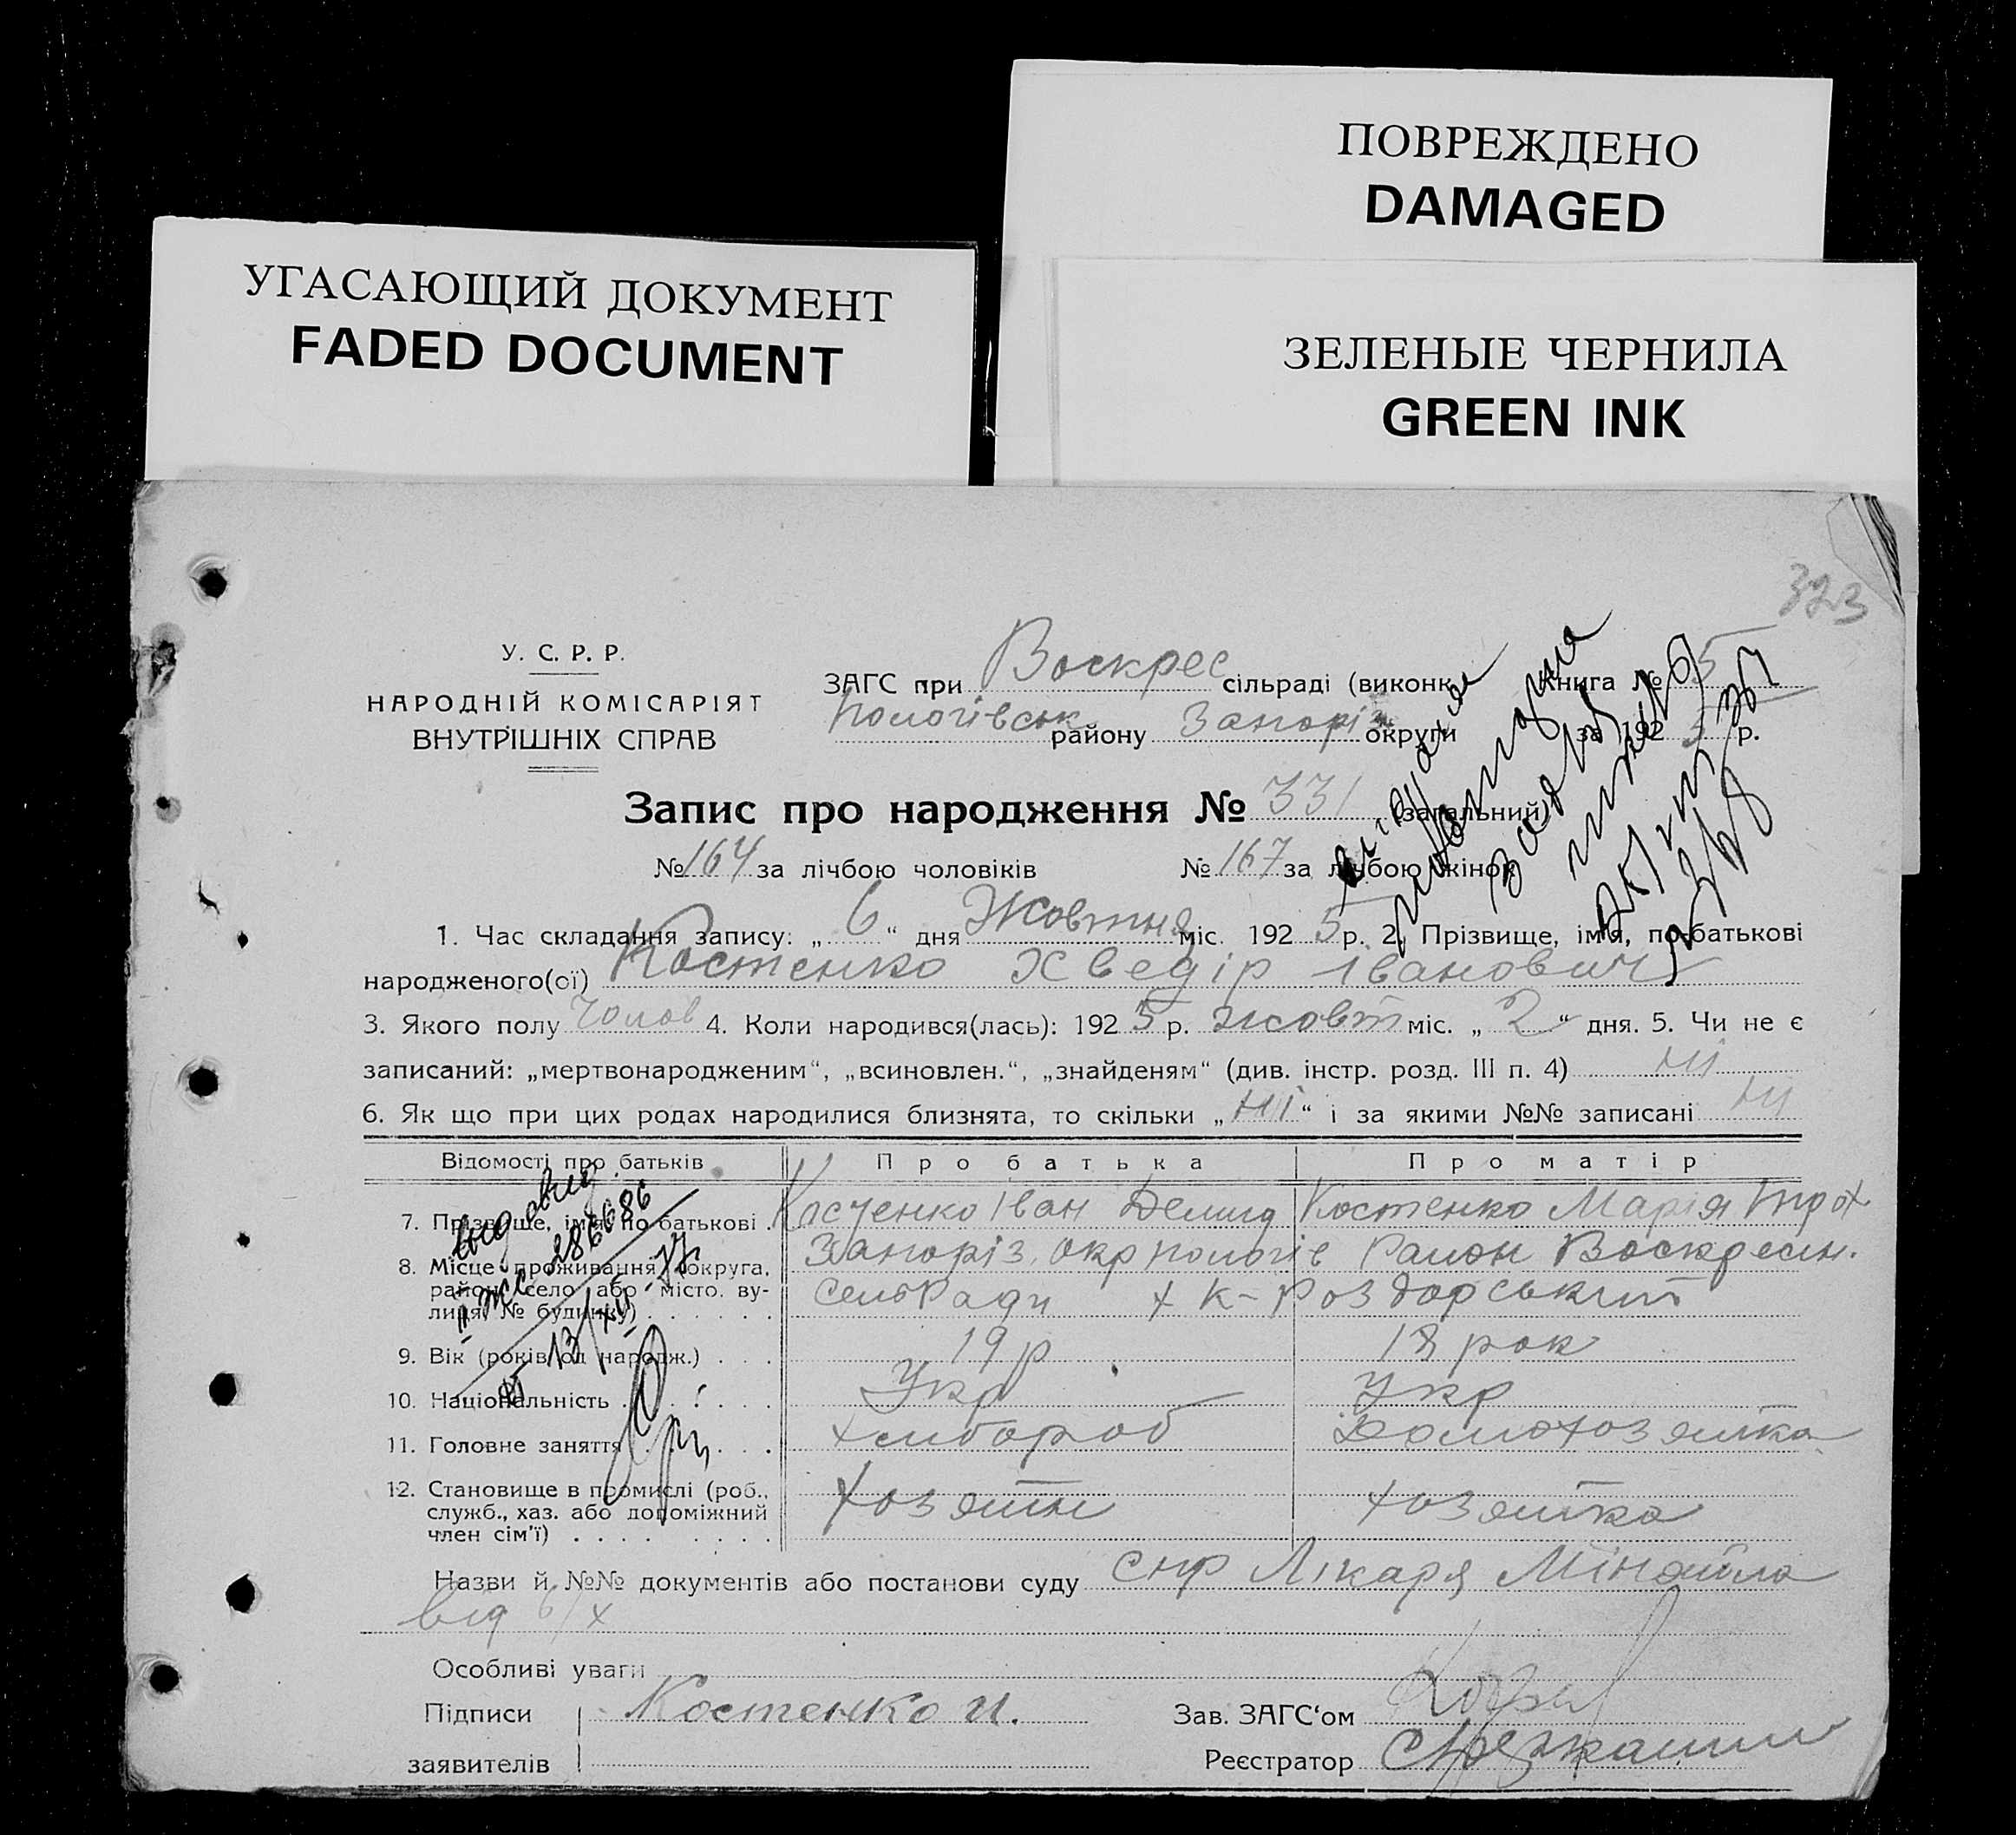 ПОВРЕЖДЕНО
DAMAGED
УГАСАЮЩИЙ ДОКУМЕНТ
FADED DOCUMENT
ЗЕЛЕНЫЕ ЧЕРНИЛА
GREEN INK
323
У. С. Р. Р.
НАРОДНІЙ КОМІСАРІЯТ
ВНУТРІШНІХ СПРАВ
ЗАГС при Воскрес сільраді (виконк. Книга № 5
Пологівськ району Запоріз округи за 192 5 р.
Запис про народження № 331 (загальний)
№ 164 за лічбою чоловіків № 167 за лічбою жінок
1. Час складання запису: „ 6 “ дня Жовтня міс. 192 5 р. 2. Прізвище, ім'я, по-батькові
народженого(ої) Костенко Хведір Іванович
3. Якого полу Чолов 4. Коли народився(лась): 192 5 р. жовт міс. „ 2 “ дня. 5. Чи не є
записаний: „мертвонародженим“, „всиновлен.“, „знайденям“ (див. інстр. розд. III п. 4) ні
6. Як що при цих родах народилися близнята, то скільки „ ні “ і за якими №№ записані ні
Відомості про батьків Про батька Про матір
7. Прізвище, ім'я, по батькові . Костенко Іван Демид Костенко Марія Трох
8. Місце проживання (округа, Запоріз. Окр Пологів Район Воскресен.
район, село або місто, ву- СельРади х К-Роздорський
лиця, № будинку) . . . . . .
9. Вік (років од народж.) . . . 19 р 18 рок
10. Національність . . . . . Укр Укр
11. Головне заняття . . . . . хлібороб Домохозяйка
12. Становище в промислі (роб.,
служб., хаз. або допоміжний Хозяїн хозяйка
член сім'ї) . . . . . . . .
II ЖС 286686
13/XII-77
Назви й №№ документів або постанови суду Лікаря
від 6/X
Особливі уваги
Підписи Костенко И. Зав. ЗАГС‘ом
заявителів Реєстратор